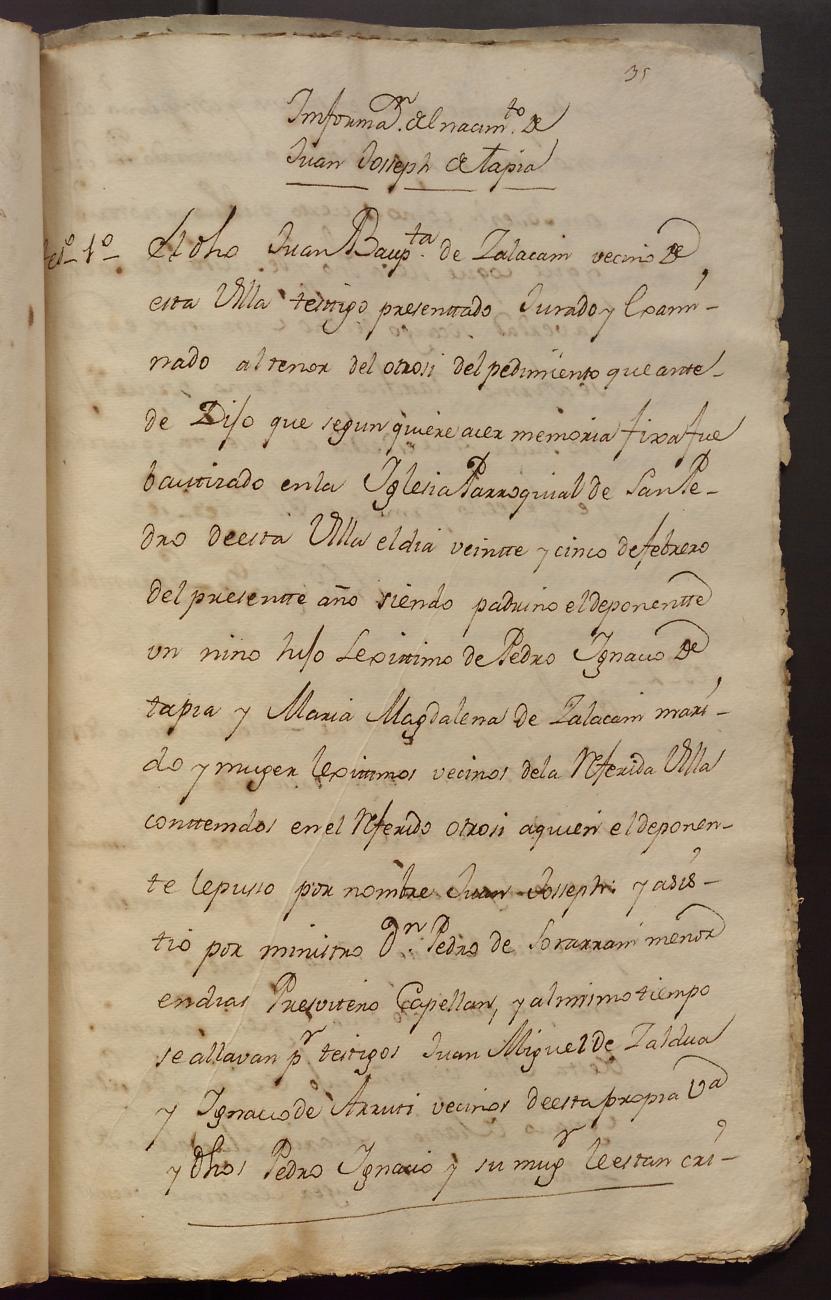 35
Informaon. del nacimto. de
Juan Josseph de tapia
tgo. 1o. El dho Juan Baupta. de Zalacain vecino de
esta Villa testtigo presenttado Jurado y Exami-
nado al tenor del otrosi del pedimiento que ante-
de Dijo que segun quiere acer memoria fixa fue
bauttizado en la Iglesia Parroquial de San Pe-
dro de esta Villa el dia veintte y cinco de febrero
del presentte año siendo padrino el deponentte
un nino hijo Lexittimo de Pedro Ignacio de
tapia y Maria Magdalena de Zalacain mari-
do y muger lexittimos vecinos de la Referida Villa
conttenidos en el Referido otrosi a quien el deponen-
te le puso por nombre Juan Josseph: y asis-
tio por ministro Dn. Pedro de Sorarrain menor
en dias Presvitero Capellan, y al mismo tiempo
se allavan pr testigos Juan Miguel de Zaldua
y Ignacio de Arruti vecinos de esta propia Va
y dhos Pedro Ignacio y su mugr le estan cri-